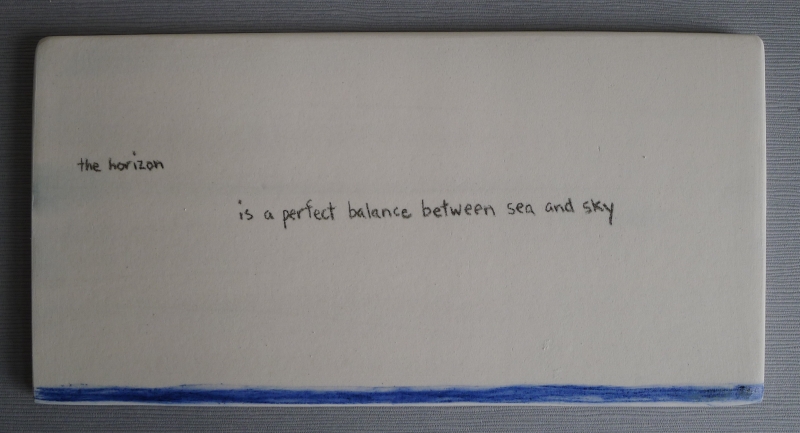 the horizon
is a perfect balance between sea and sky